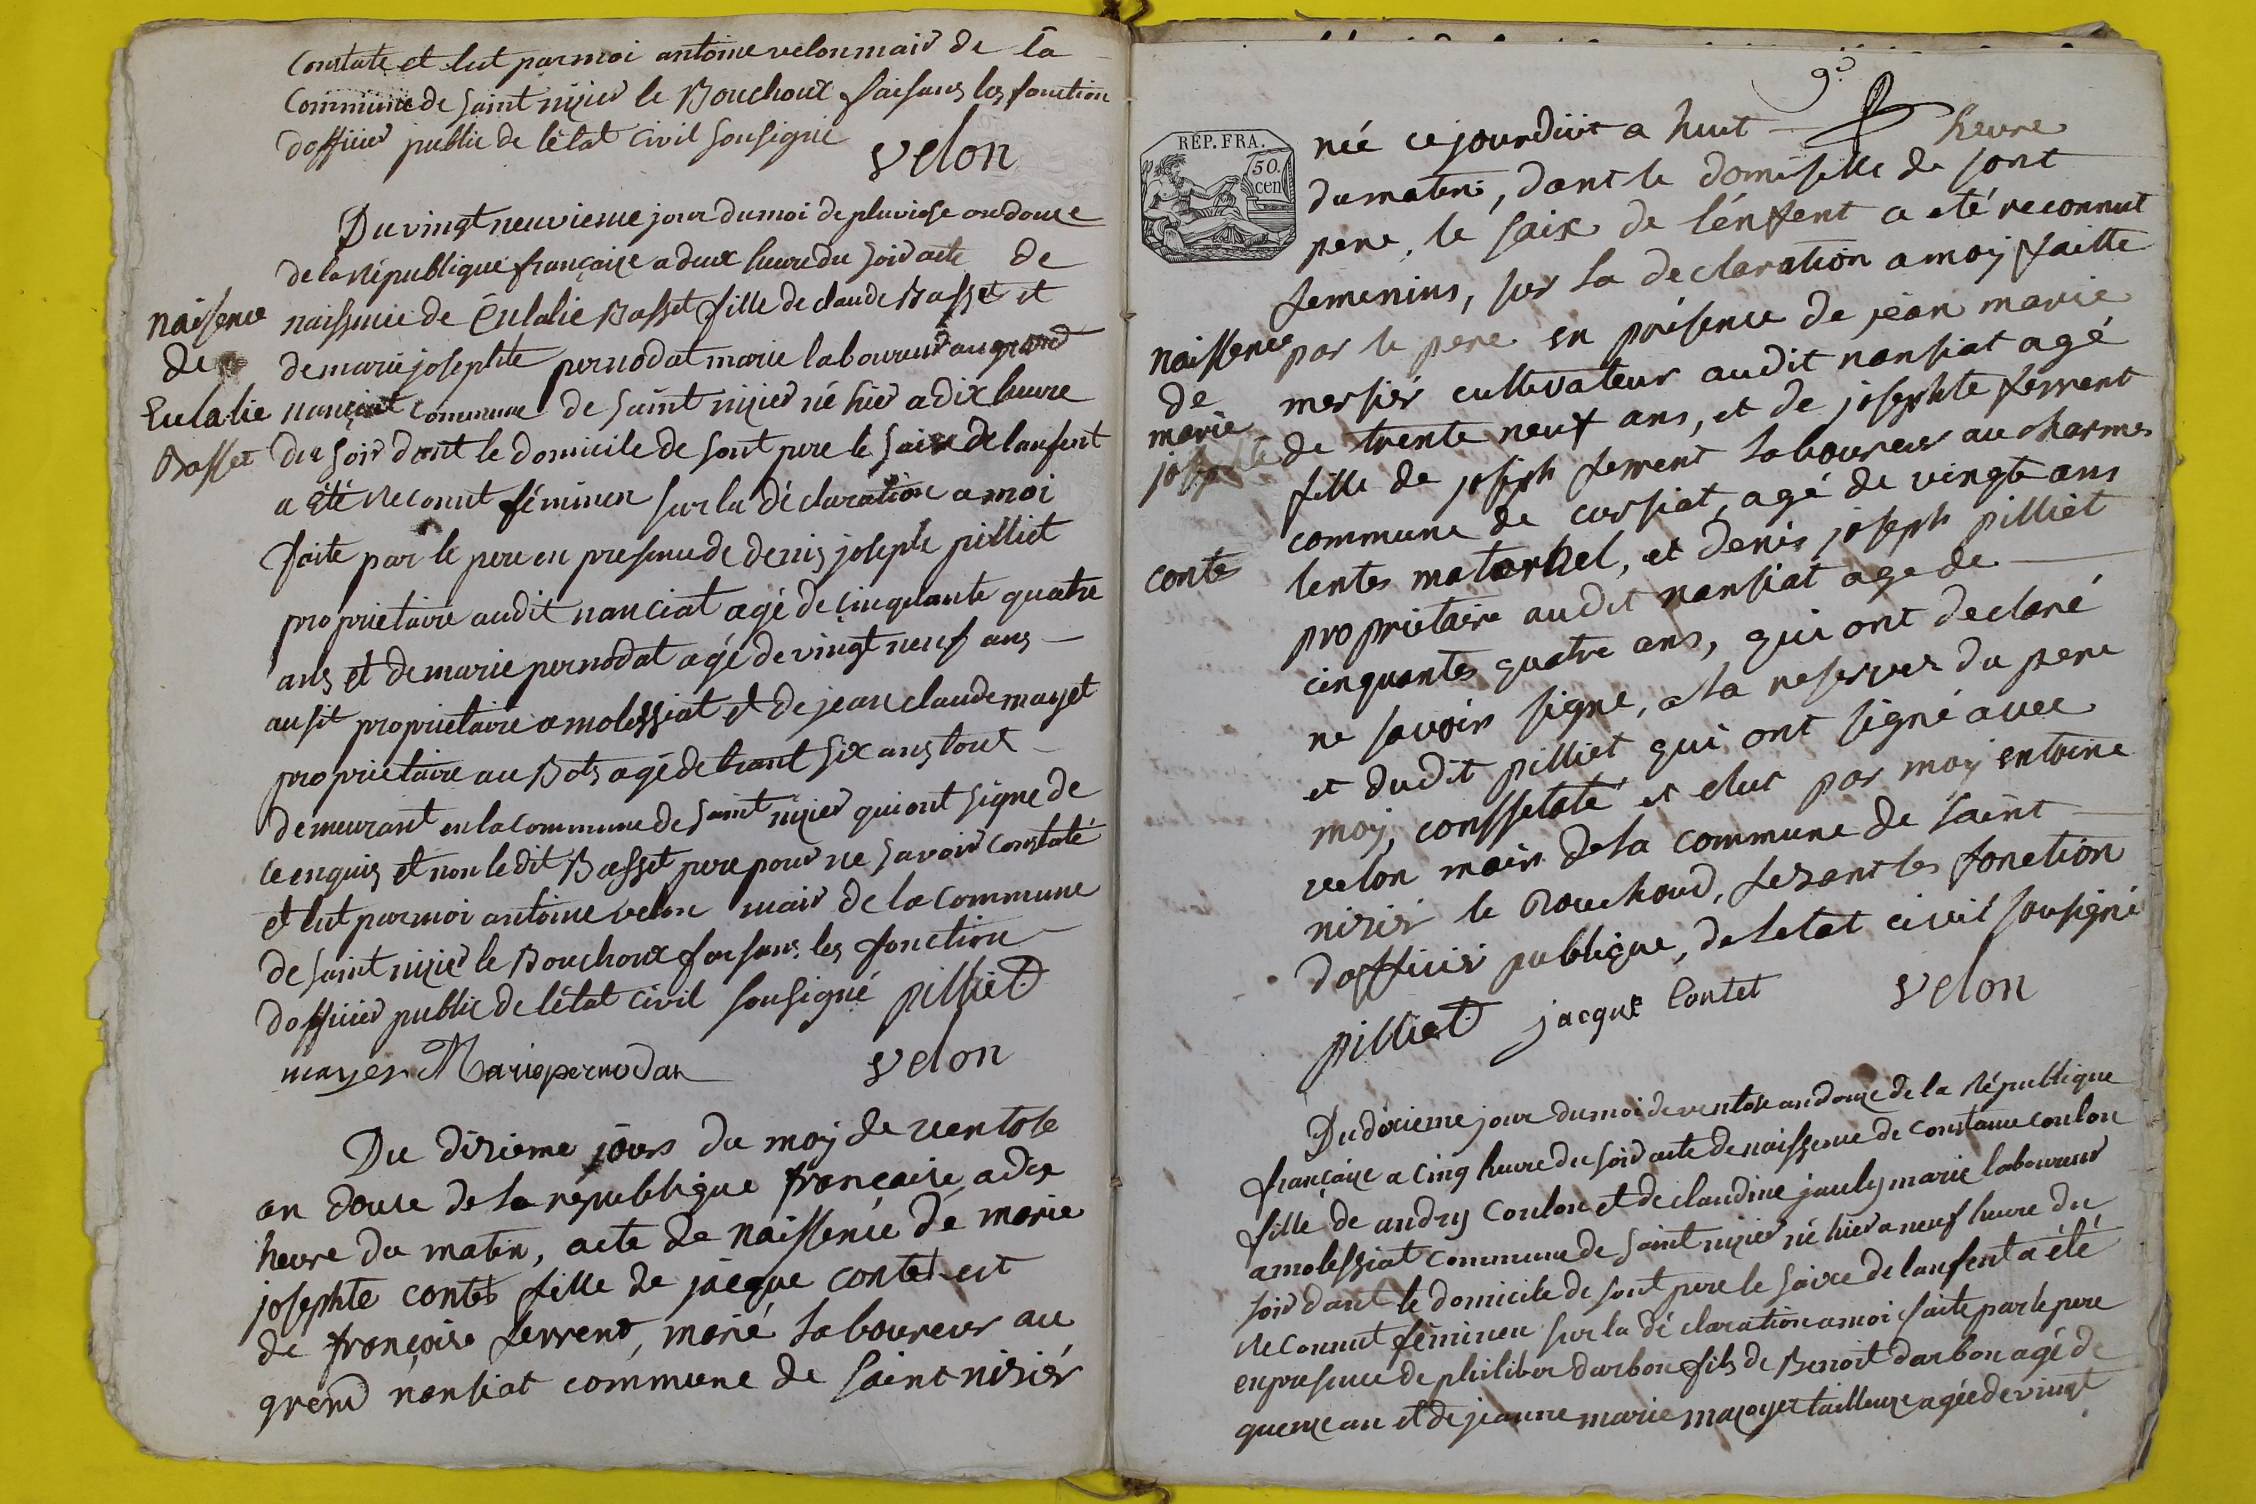 Constate et lut par moi antoine velon mair de la
Commune de saint nizier le Bouchoux faisans les fonction
dofficier public de létat civil sousigné
velon
Du vingt neuvieme jour du moi de pluviose an douze
de la République française a deux heure du soir acte de
naissence de Eulalie Basset fille de claude Basset et
de marie josephte pernodat marié laboureur au grand
nanciat commune de saint nizier né hier a dix heure
du soir dant le domicile de sont pere le saixe de lanfent
a été Reconnut féminen sur la déclaration a moi
faite par le pere en presence de denis joseph pilliet
proprietaire audit nanciat agé de cinquante quatre
ans et de marie pernodat agé de vingt neuf ans
ausit proprietaire a molessiat et de jean claude mayet
proprietaire au Bots agé de trant six ans tous
demeurant en la commune de saint nizier qui ont signe de
ce enquis et non le dit Basset pere pour ne savoir constaté
et lut par moi antoine velon mair de la commune
de saint nizier le Bouchoux faisans les fonction
dofficier public de létat civil sousigné pilliet
mayer Marie pernodan velon
naissence
de
Eulalie
Basset
Du dizieme jours du moy de ventose
an douze de la republique françaisse a dix
heure du matin, acte de naissence de marie
josephte contet fille de jacque contet et
de françoise ferrent, marié laboureur au
grend nansiat commune de saint niziér
9e
RÉP. FRA.
50.
cen
né ce jourdiut a huit heure
du matin, dant le domiselle de sont
pere, le saix de lénfent a eté reconnut
femenins, sur la declaration a moy faitte
par le pere en présence de jean marie
mersiér cultivateur audit nansiat agé
de trente neuf ans, et de josephte ferrent
fille de joseph ferrent laboureur au charmes
commune de cursiat, agé de vingte ans
tentes maternel, et denis joseph pilliet
proprietaire audit nansiat age de
cinquantes quatre ans, qui ont declaré
ne savoir signe, a la reserver du pere
et dudit pilliet qui ont signé avec
moy, conssetaté et elut par moy entoine
velon mair de la commune de saint
niziér le Bouchoud, fezant les fonction
dofficiér publique, de letat civil sousigné
pilliet jacque Contet velon
naissence
de
marie
josephte
contes
Du dixieme jour du moi de ventose an douze de la République
française a cinq heure du soir acte de naissence de constance coulon
fille de andry Coulon et de claudine jauly marié laboureur
a molessiat commune de saint nizier né hier a neuf heure du
soir dant le domicile de sont pere le saixe de lanfent a été
Reconnut féminen sur la déclaration a moi faite par le pere
en presence de philiber darbon fils de Benoit darbon agé de
quenze an et de jeanne marie mazoyer tailleuze agée de vingt